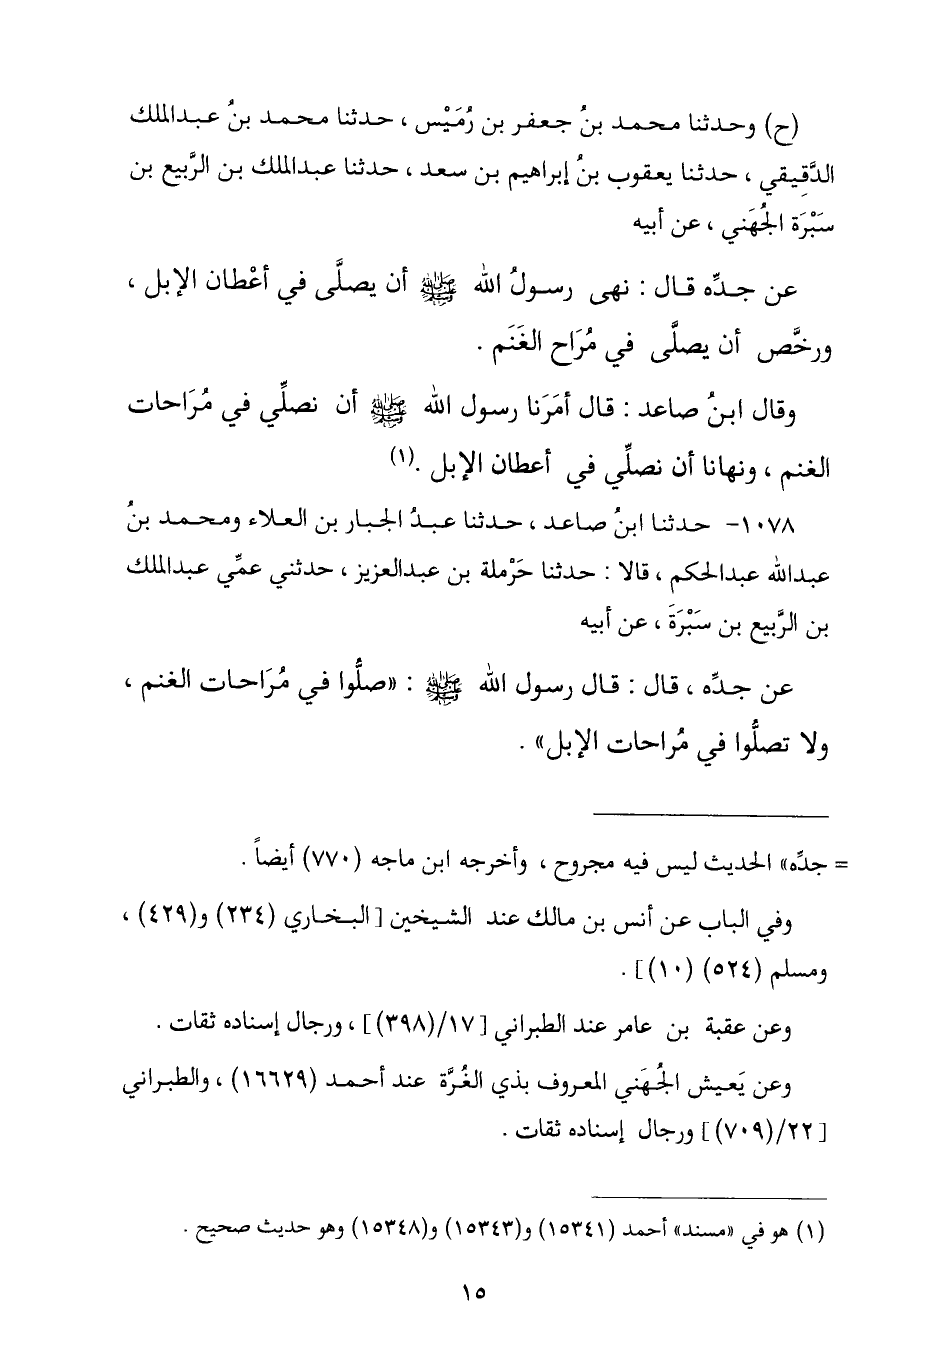 (ح) وحدثنا محمد بنُ جعفر بن رُمَيْس ، حدثنا محمد بنُ عبدالملك
الدَّقِيقي ، حدثنا يعقوب بنُ إبراهيم بن سعد ، حدثنا عبدالملك بن الرَّبيع بن
سَبْرَة الجُهَني ، عن أبيه
عن جدِّه قال : نهى رسولُ الله ﷺ أن يصلَّى في أعْطان الإبل ،
ورخَّص أن يصلَّى في مُرَاح الغَنَم .
وقال ابنُ صاعد : قال أمَرَنا رسول الله ﷺ أن نصلِّي في مُرَاحات
الغنم ، ونهانا أن نصلِّي في أعطان الإبل .(١)
١٠٧٨- حدثنا ابنُ صاعد ، حدثنا عبدُ الجبار بن العلاء ومحمد بنُ
عبدالله عبدالحكم ، قالا : حدثنا حَرْملة بن عبدالعزيز ، حدثني عمِّي عبدالملك
بن الرَّبيع بن سَبْرَةَ ، عن أبيه
عن جدِّه ، قال : قال رسول الله ﷺ : «صلُّوا في مُرَاحات الغنم ،
ولا تصلُّوا في مُراحات الإبل» .
= جدِّه» الحديث ليس فيه مجروح ، وأخرجه ابن ماجه (٧٧٠) أيضاً .
وفي الباب عن أنس بن مالك عند الشيخين [البخاري (٢٣٤) و(٤٢٩) ،
ومسلم (٥٢٤) (١٠)] .
وعن عقبة بن عامر عند الطبراني [١٧/(٣٩٨)] ، ورجال إسناده ثقات .
وعن يَعيش الجُهَني المعروف بذي الغُرَّة عند أحمد (١٦٦٢٩) ، والطبراني
[٢٢/(٧٠٩)] ورجال إسناده ثقات .
(١) هو في «مسند» أحمد (١٥٣٤١) و(١٥٣٤٣) و(١٥٣٤٨) وهو حديث صحيح .
١٥